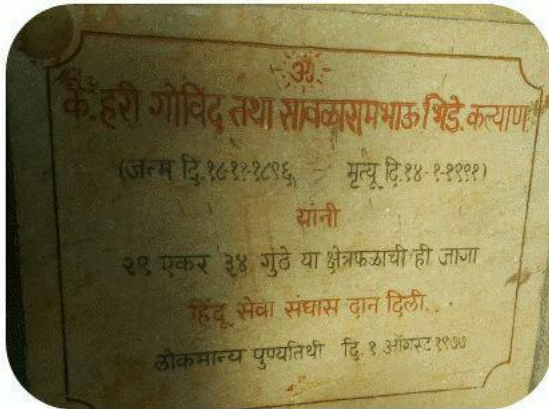 ॐ
कै. हरी गोविंद तथा सावळारामभाऊ भिडे. कल्याण.
(जन्म दि.१८-११-१८९६ - मृत्यू दि.१४-१-१९९१)
यांनी
२९ एकर ३४ गुंठे या क्षेत्रफळाची ही जागा
हिंदू सेवा संघास दान दिली.
लोकमान्य पुण्यतिथी दि. १ ऑगस्ट १९७७